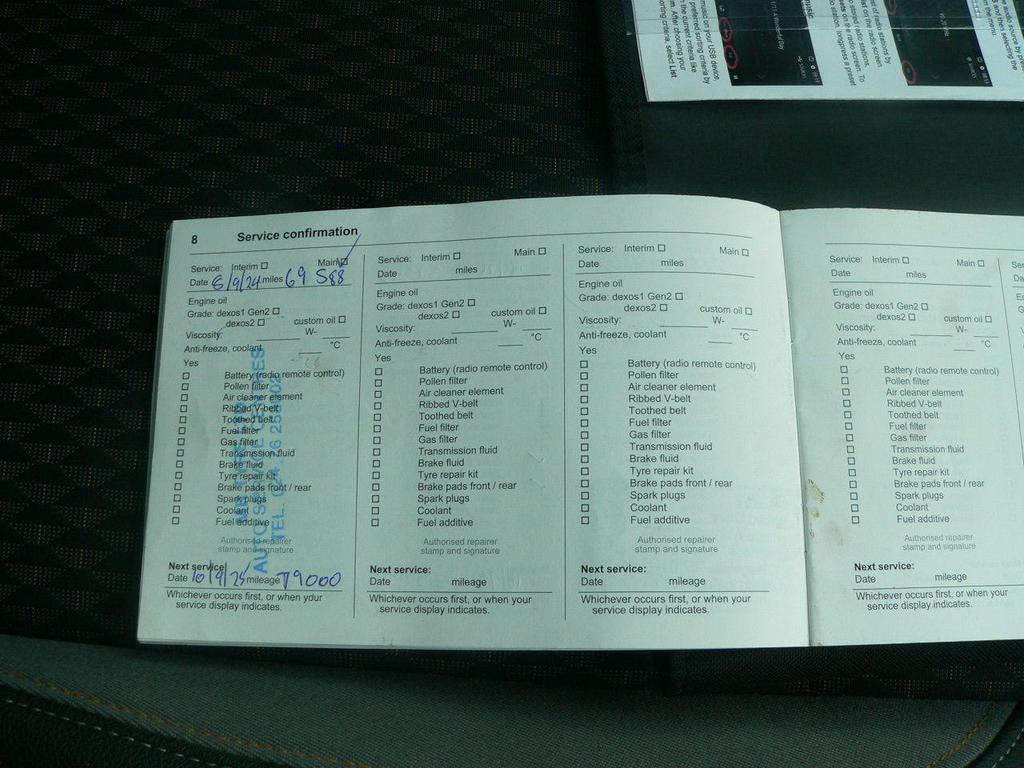 8 Service confirmation
Service: Interim ☐ Main ☑
Date 5/9/24 miles 69 588
Engine oil
Grade: dexos1 Gen2 ☐
dexos2 ☐ custom oil ☐
Viscosity: ____ W- ____
Anti-freeze, coolant ____ °C
Yes
☐ Battery (radio remote control)
☐ Pollen filter
☐ Air cleaner element
☐ Ribbed V-belt
☐ Toothed belt
☐ Fuel filter
☐ Gas filter
☐ Transmission fluid
☐ Brake fluid
☐ Tyre repair kit
☐ Brake pads front / rear
☐ Spark plugs
☐ Coolant
☐ Fuel additive
Authorised repairer
stamp and signature
AUTO
TEL.
Next service:
Date 10/9/25 mileage 79000
Whichever occurs first, or when your
service display indicates.
Service: Interim ☐ Main ☐
Date miles
Engine oil
Grade: dexos1 Gen2 ☐
dexos2 ☐ custom oil ☐
Viscosity: ____ W- ____
Anti-freeze, coolant ____ °C
Yes
☐ Battery (radio remote control)
☐ Pollen filter
☐ Air cleaner element
☐ Ribbed V-belt
☐ Toothed belt
☐ Fuel filter
☐ Gas filter
☐ Transmission fluid
☐ Brake fluid
☐ Tyre repair kit
☐ Brake pads front / rear
☐ Spark plugs
☐ Coolant
☐ Fuel additive
Authorised repairer
stamp and signature
Next service:
Date mileage
Whichever occurs first, or when your
service display indicates.
Service: Interim ☐ Main ☐
Date miles
Engine oil
Grade: dexos1 Gen2 ☐
dexos2 ☐ custom oil ☐
Viscosity: ____ W- ____
Anti-freeze, coolant ____ °C
Yes
☐ Battery (radio remote control)
☐ Pollen filter
☐ Air cleaner element
☐ Ribbed V-belt
☐ Toothed belt
☐ Fuel filter
☐ Gas filter
☐ Transmission fluid
☐ Brake fluid
☐ Tyre repair kit
☐ Brake pads front / rear
☐ Spark plugs
☐ Coolant
☐ Fuel additive
Authorised repairer
stamp and signature
Next service:
Date mileage
Whichever occurs first, or when your
service display indicates.
Service: Interim ☐ Main ☐
Date miles
Engine oil
Grade: dexos1 Gen2 ☐
dexos2 ☐ custom oil ☐
Viscosity: ____ W- ____
Anti-freeze, coolant ____ °C
Yes
☐ Battery (radio remote control)
☐ Pollen filter
☐ Air cleaner element
☐ Ribbed V-belt
☐ Toothed belt
☐ Fuel filter
☐ Gas filter
☐ Transmission fluid
☐ Brake fluid
☐ Tyre repair kit
☐ Brake pads front / rear
☐ Spark plugs
☐ Coolant
☐ Fuel additive
Authorised repairer
stamp and signature
Next service:
Date mileage
Whichever occurs first, or when your
service display indicates.
music on your USB device,
preferred sorting criteria by
the current criteria like
m. After choosing your
orting criteria, select List.